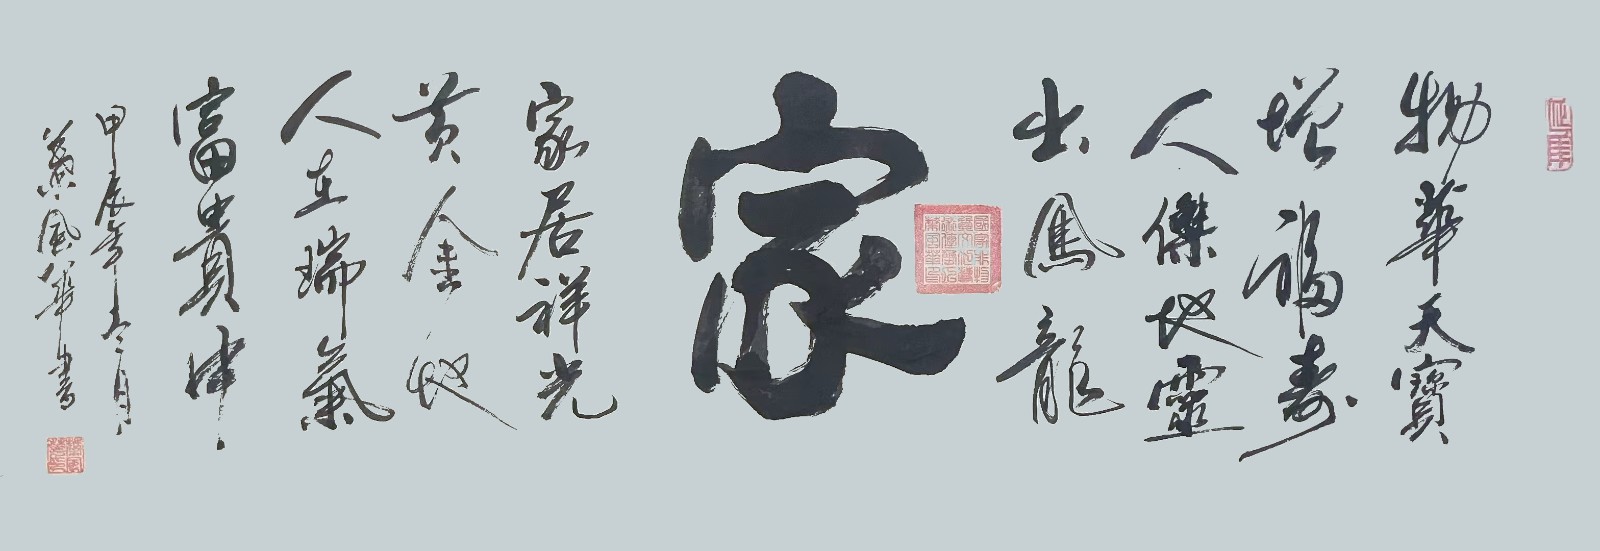 物華天寶
增福壽
人傑地靈
出鳳龍
家
家居祥光
黄金地
人在瑞氣
富貴中
甲辰年月
風華書